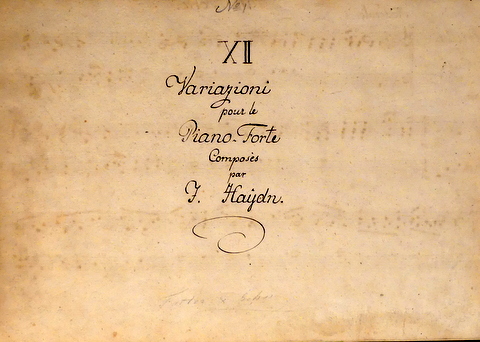 No 1
XII
Variazioni
pour le
Piano-Forte
Composés
par
J. Haÿdn.